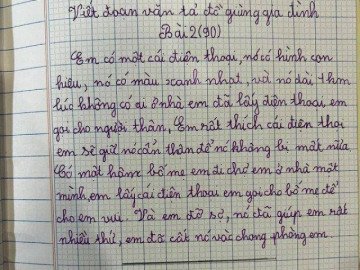 Viết đoạn văn tả đồ gùng gia đình
Bài 2 (90)
Em có một cái điện thoại, nó có hình con
hiêu, nó có màu xanh nhạt, và nó dài 7 hm
lúc không có ai ở nhà em đã lấy điện thoại, em
gọi cho người thân, Em rất thích cái điện thoại
em sẽ giữ nó cẩn thân để nó không bị mất nữa
Có một hôm bố mẹ em đi chợ em ở nhà một
mình, em lấy cái điện thoai em gọi cho bố mẹ để
cho em vui. Và em đỡ sợ, nó đã giúp em rất
nhiều thứ, em đã cất nó vào chong phòng em.